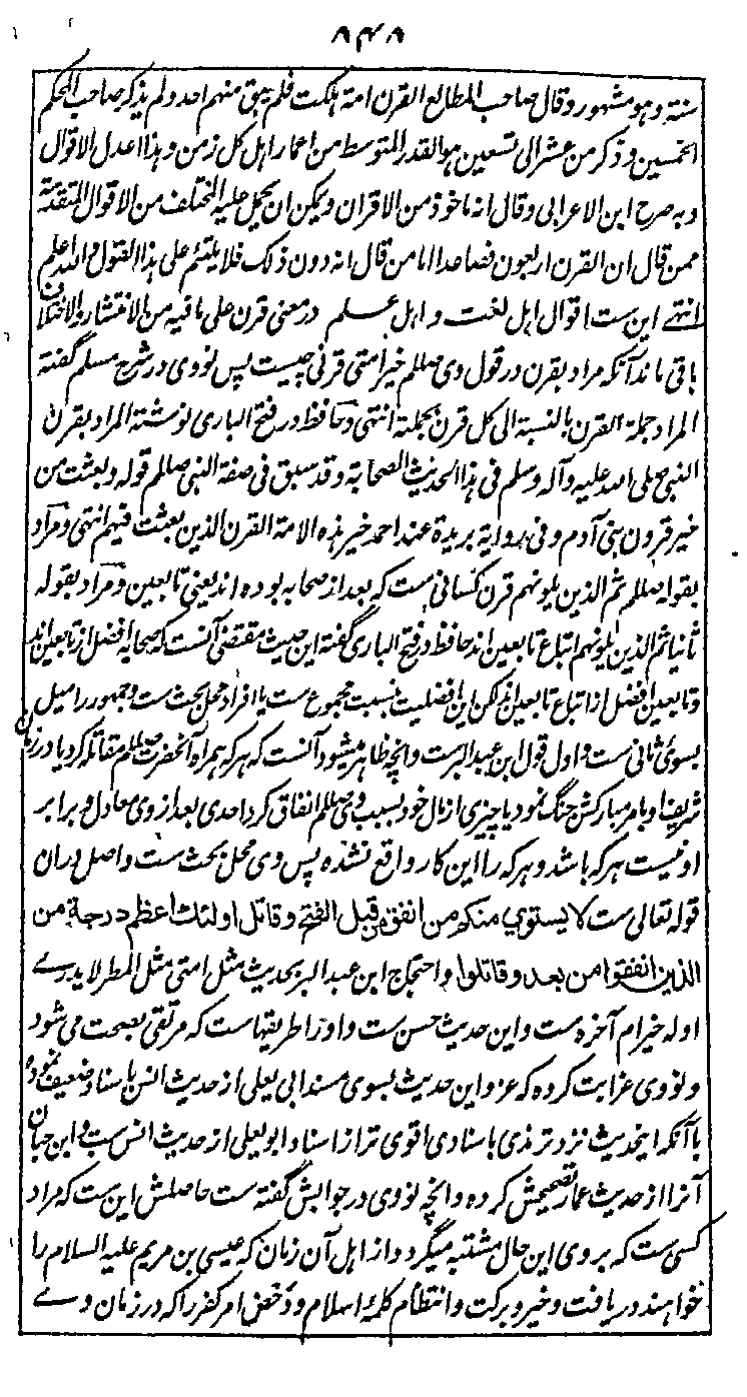 ۸۴۸
سنة وهو مشهور وقال صاحب المطالع القرن امة هلکت فلم یبق منهم احد ولم یذکر صاحب المحکم
الخمسین وذکر من عشر الی تسعین هو القدر المتوسط من اعمار اهل کل زمن وهذا اعدل الاقوال
وبه صرح ابن الاعرابی وقال انه ماخوذ من الاقران ویمکن ان یحمل علیه المختلف من الاقوال المتقدمة
ممن قال ان القرن اربعون فصاعدا اما من قال انه دون ذلک فلا یلتئم علی هذا القول والله اعلم
انتهے این ست اقوال اهل لغت و اهل علم در معنی قرن علی ما فیه من الانتشار والاختلاف
باقی ماند آنکه مراد بقرن در قول وی صللم خیر امتی قرنی چیست پس نووی در شرح مسلم گفته
المراد جملة القرن بالنسبة الی کل قرن بجملته انتهی و حافظ در فتح الباری نوشته المراد بقرن
النبی صلی الله علیه وآله وسلم فی هذا الحدیث الصحابة وقد سبق فی صفة النبی صللم قوله وبعثت من
خیر قرون بنی آدم وفی روایة بریدة عند احمد خیر هذه الامة القرن الذین بعثت فیهم انتهی و مراد
بقوله صللم ثم الذین یلونهم قرن کسانی ست که بعد از صحابه بوده اند یعنی تابعین و مراد بقوله
ثانیا ثم الذین یلونهم اتباع تابعین اند حافظ در فتح الباری گفته این حدیث مقتضی آنست که صحابه افضل از تابعین اند
و تابعین افضل از اتباع تابعین لکن این افضلیت بنسبت مجموع ست یا افراد محل بحث ست و جمهور را میل
بسوی ثانی ست و اول قول ابن عبد البر ست و آنچه ظاهر میشود آنست که هر که همراه آنحضرت صللم مقاتله کرد یا در زمان
شریف او بامر مبارکش جنگ نمود یا چیزی از مال خود بسبب وی صللم انفاق کرد احدی بعد از وی معادل و برابر
او نیست هر که باشد و هر که را این کار واقع نشده پس وی محل بحث ست و اصل دران
قوله تعالی ست لا یستوي منکم من انفق من قبل الفتح وقاتل اولئک اعظم درجة من
الذین انفقوا من بعد وقاتلوا و احتجاج ابن عبد البر بحدیث مثل امتی مثل المطر لا یدرے
اوله خیر ام آخره ست و این حدیث حسن ست و او را طریقهاست که مرتقی بصحت می شود
و نووی غرابت کرده که عزو این حدیث بسوی مسند ابی یعلی از حدیث انس باسناد ضعیف نموده
با آنکه اینحدیث نزد ترمذی باسنادی اقوی تر از اسناد ابو یعلی از حدیث انس ست و ابن حبان
آنرا از حدیث عمار تصحیحش کرده و آنچه نووی در جوابش گفته ست حاصلش این ست که مراد
کسی ست که بر وی این حال مشتبه میگردد از اهل آن زمان که عیسی بن مریم علیه السلام را
خواهند دریافت و خیر و برکت و انتظام کلمۀ اسلام و دحض امر کفر را که در زمان وے